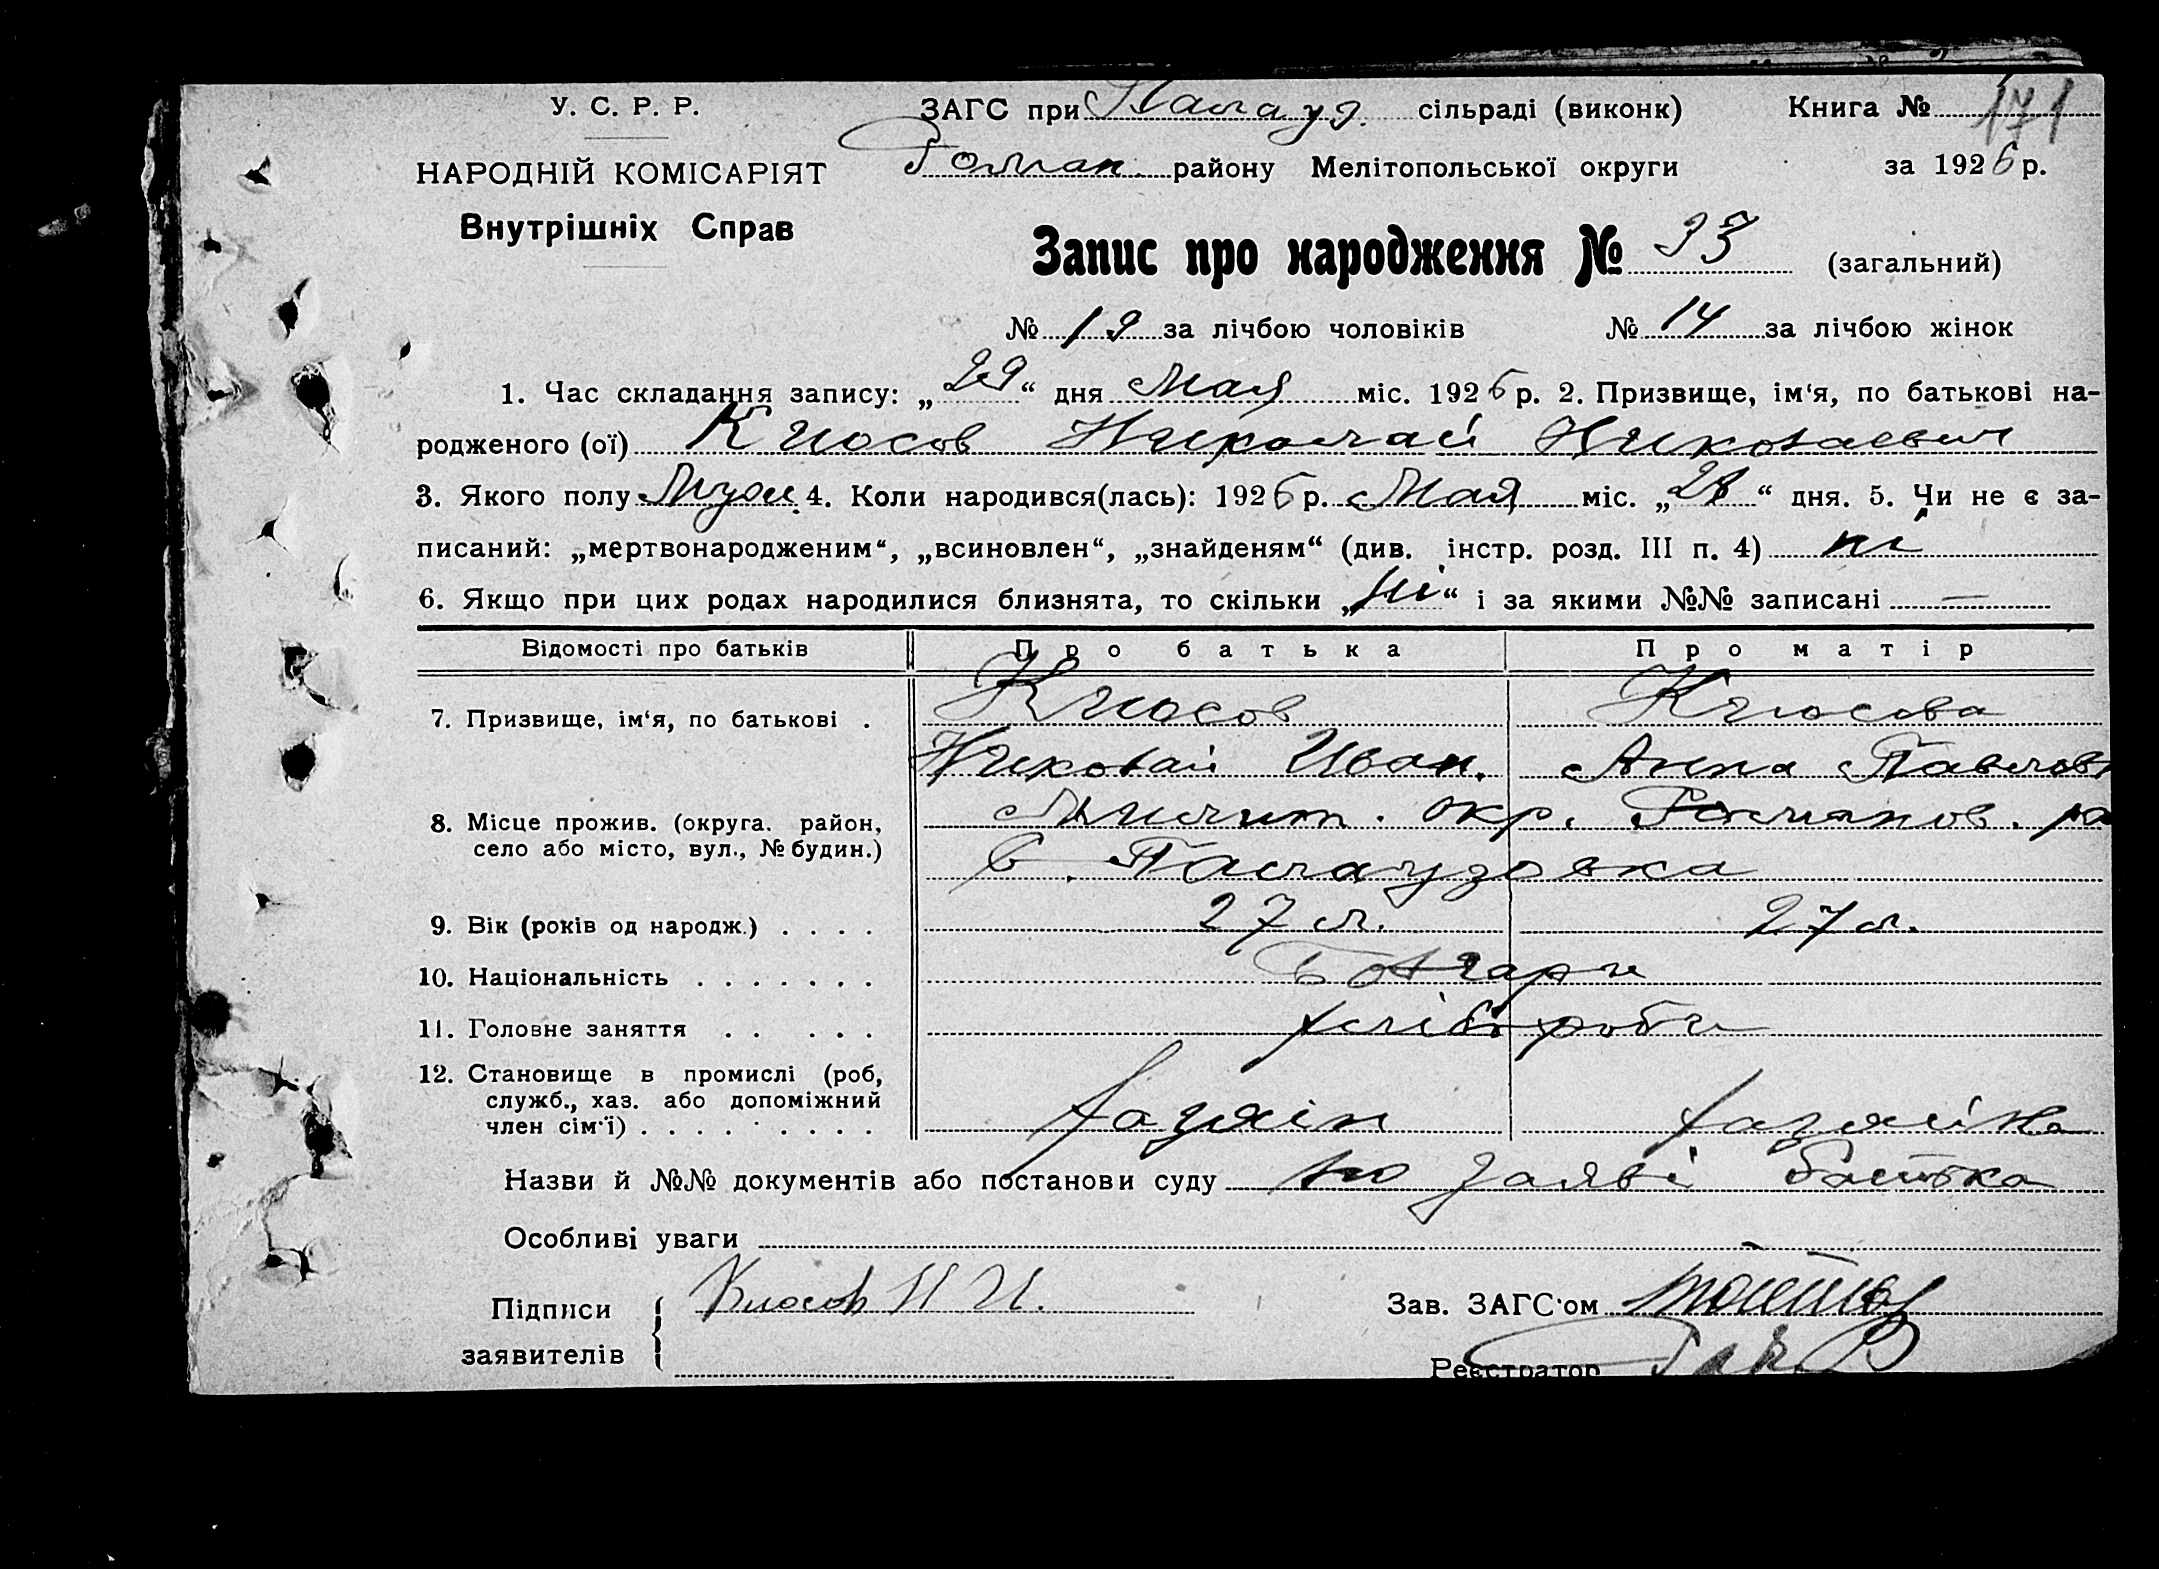 У. С. Р. Р. ЗАГС при Палауз. сільраді (виконк) Книга № 171
НАРОДНІЙ КОМІСАРІЯТ Роман. району Мелітопольської округи за 1926 р.
Внутрішніх Справ
Запис про народження № 33 (загальний)
№ 19 за лічбою чоловіків № 14 за лічбою жінок
1. Час складання запису: „29“ дня Мая міс. 1926 р. 2. Призвище, ім‘я, по батькові на-
родженого (ої) Кюсов Николай Николаевич
3. Якого полу Муж. 4. Коли народився(лась): 1926 р. Мая міс. „28“ дня. 5. Чи не є за-
писаний: „мертвонародженим“, „всиновлен“, „знайденям“ (див. інстр. розд. III п. 4) ні
6. Якщо при цих родах народилися близнята, то скільки „ні“ і за якими №№ записані —
Відомості про батьків Про батька Про матір
7. Призвище, ім‘я, по батькові . Кюсов Кюсова
Николай Иван. Анна Павловн
8. Місце прожив. (округа. район, Мелит. окр. Романов. ра
село або місто, вул., № будин.) С. Палаузовка
9. Вік (років од народж.) . . . . 27 л. 27 л.
10. Національність . . . . . . . Болгари
11. Головне заняття . . . . . хліброби
12. Становище в промислі (роб,
служб., хаз. або допоміжний
член сім‘ї) . . . . . . . . . хазяін хазяйка
Назви й №№ документів або постанови суду по заяві батька
Особливі уваги
Підписи Кюсов Н И. Зав. ЗАГС‘ом
заявителів Реєстратор